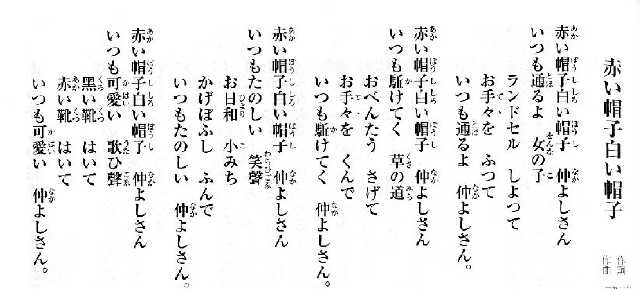 赤い帽子白い帽子
作詞
作曲
赤い帽子白い帽子　仲よしさん
いつも通るよ　女の子
ランドセル　しよつて
お手々を　ふつて
いつも通るよ　仲よしさん。
赤い帽子白い帽子　仲よしさん
いつも駈けてく　草の道
おべんたう　さげて
お手々を　くんで
いつも駈けてく　仲よしさん。
赤い帽子白い帽子　仲よしさん
いつもたのしい　笑聲
お日和　小みち
かげぼふし　ふんで
いつもたのしい　仲よしさん。
赤い帽子白い帽子　仲よしさん
いつも可愛い　歌ひ聲
黑い靴　はいて
赤い靴　はいて
いつも可愛い　仲よしさん。